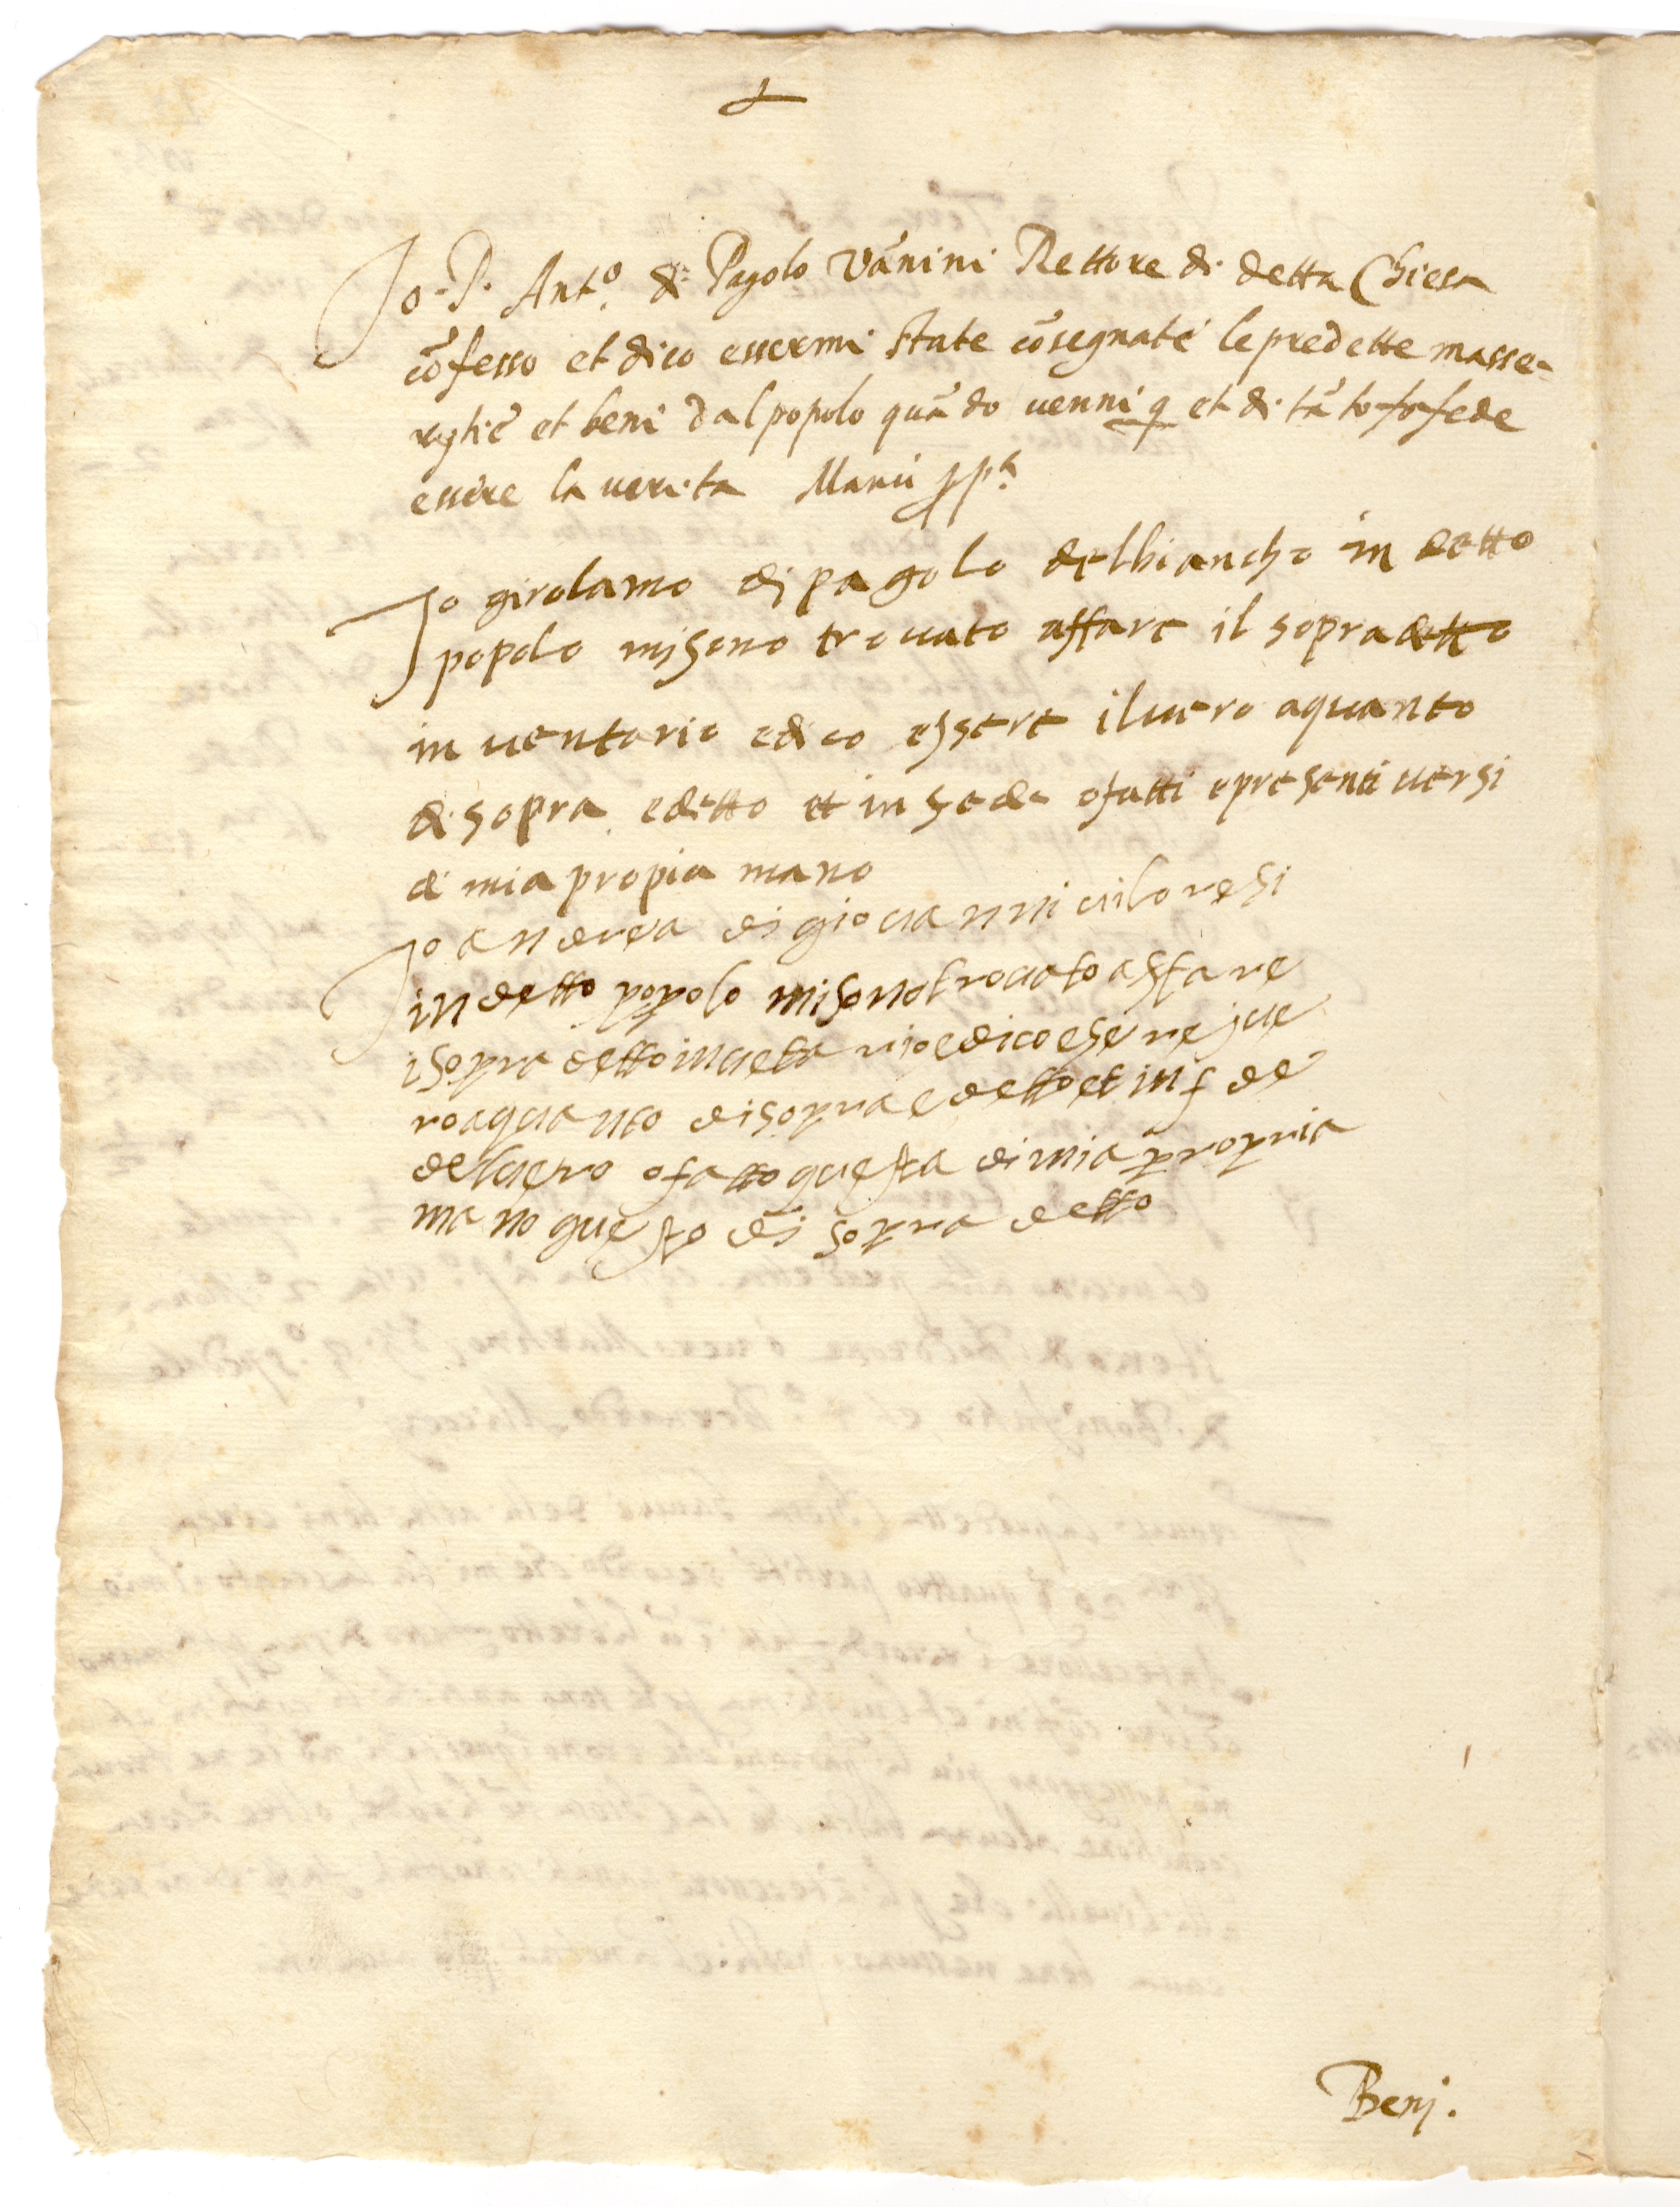 Io P. Ant.º di Pagolo Vãnini Rettore di detta Chiesa
cõfesso et dico essermi state cõsegnate le predette masse-
ritie et beni dal popolo quãdo venni q et di tãto fo fede
essere la verita Manu pp.ª
Io girolamo di pagolo delbiancho in detto
popolo misono trovato affare il sopradetto
in ventario edico essere ilvero aquanto
disopra edetto et in fede ofatti epresenti versi
di mia propia mano
Io andrea di giovanni viloresi
indetto popolo misonotrovatoaffare
isopra dettoinvetario edicoesere ive
roaquanto disopra edetto et in f de
delvero ofatto questa dimia propria
mano questo di sopra detto
Benj.